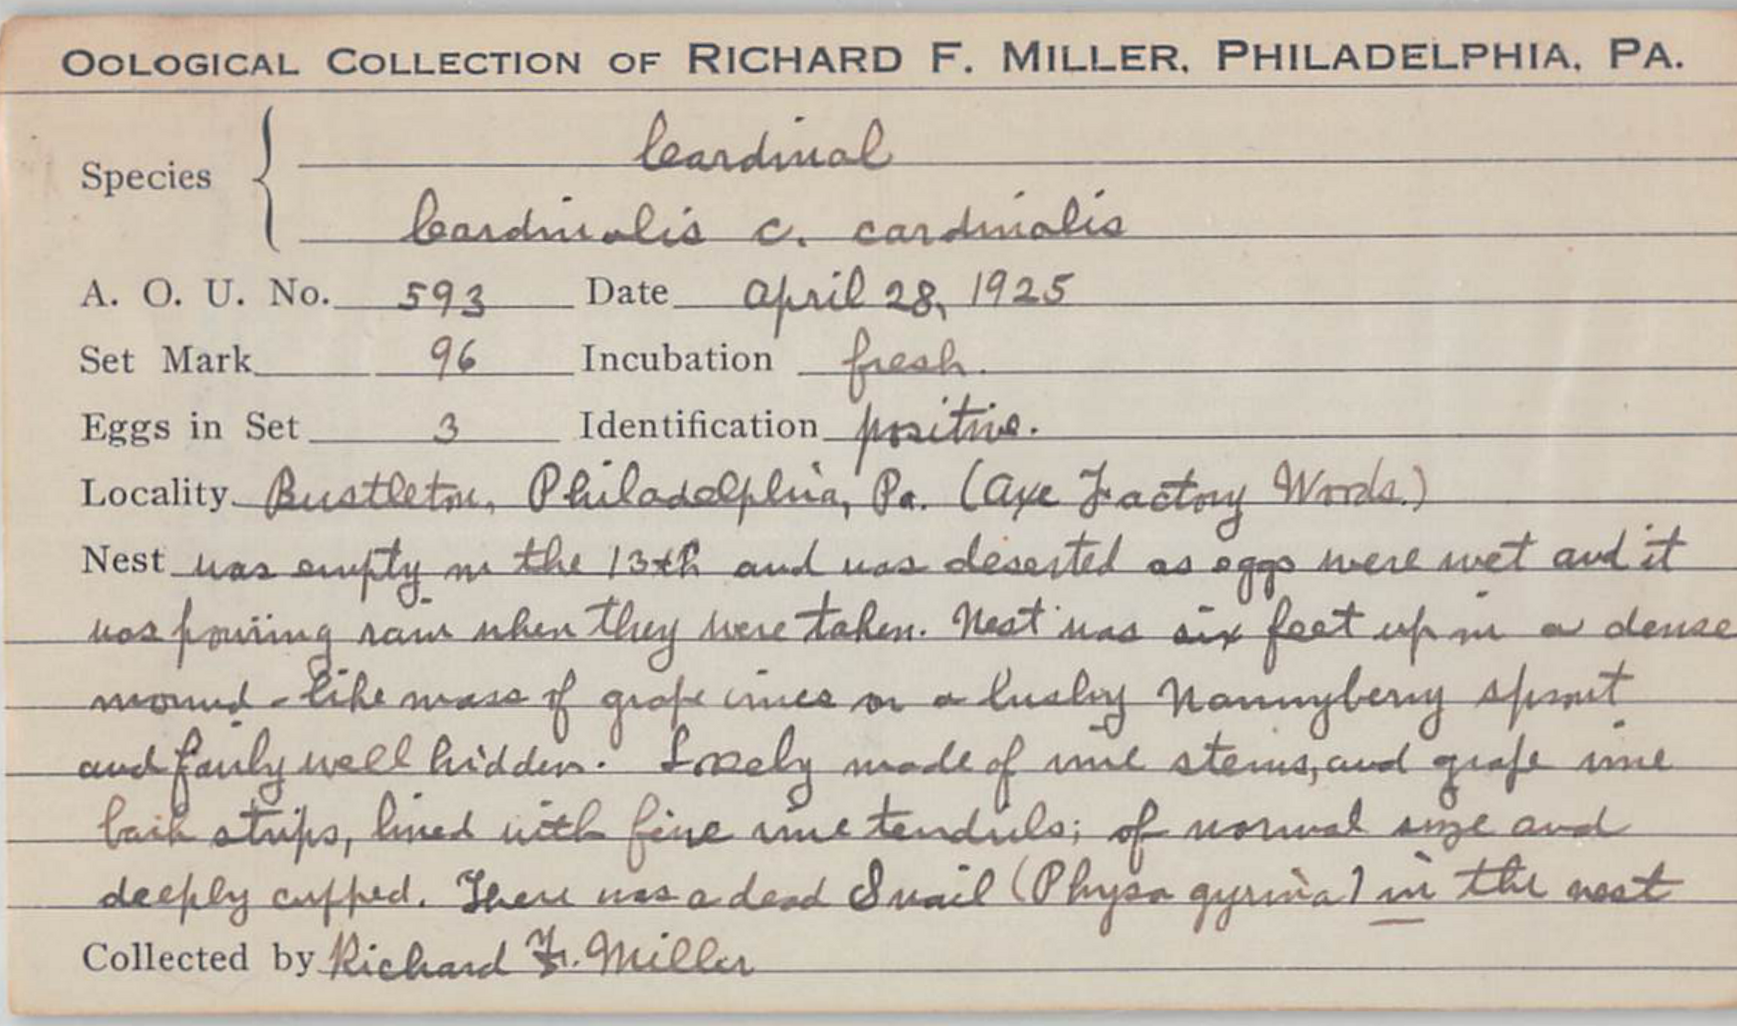 OOLOGICAL COLLECTION OF RICHARD F. MILLER, PHILADELPHIA, PA.
Species
Cardinal
Cardinalis c. cardinalis
A. O. U. No. 593 Date April 28, 1925
Set Mark 96 Incubation fresh.
Eggs in Set 3 Identification positive.
Locality Bustleton, Philadelphia, Pa. (Axe Factory Woods.)
Nest was empty on the 13th and was deserted as eggs were wet and it
was pouring rain when they were taken. Nest was six feet up in a dense
mound-like mass of grape vines on a bushy Nannyberry sprout
and fairly well hidden. Loosely made of vine stems, and grape vine
bark strips, lined with fine vine tendrils; of normal size and
deeply cupped. There was a dead Snail (Physa gyrina) in the nest
Collected by Richard F. Miller